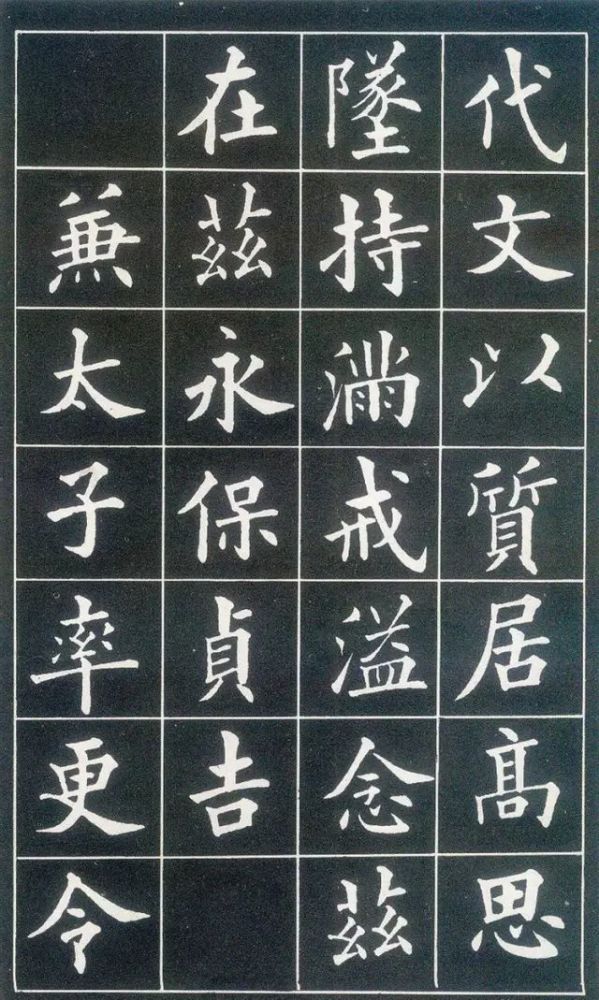 代文以質居髙思
墜持滿戒溢念茲
在茲永保貞吉
兼太子率更令